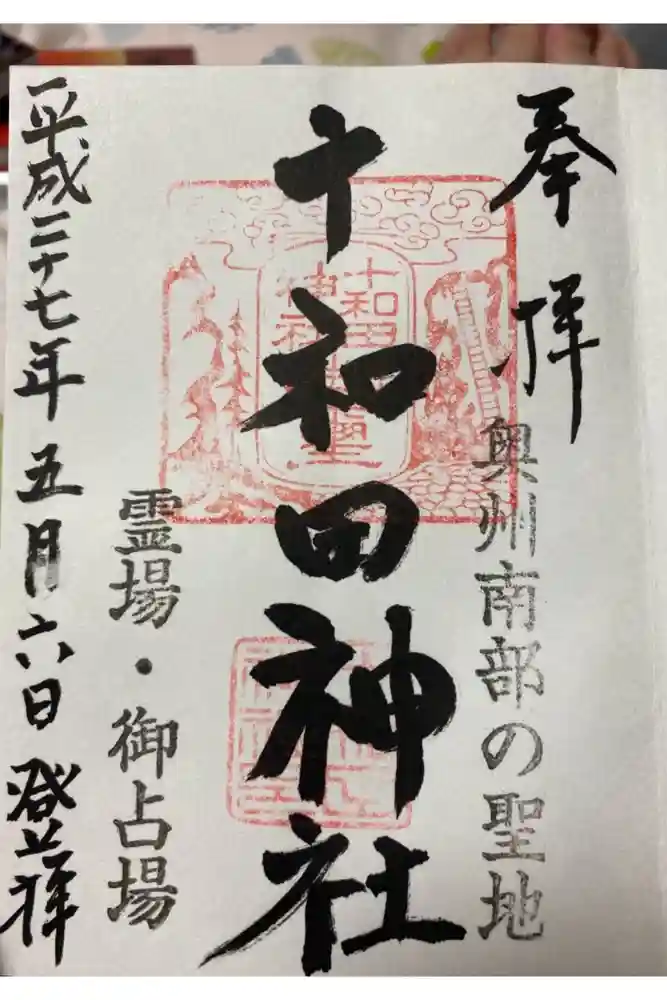 奉拝
奥州南部の聖地
十和田神社
霊場・御占場
平成二十七年五月六日 登拝